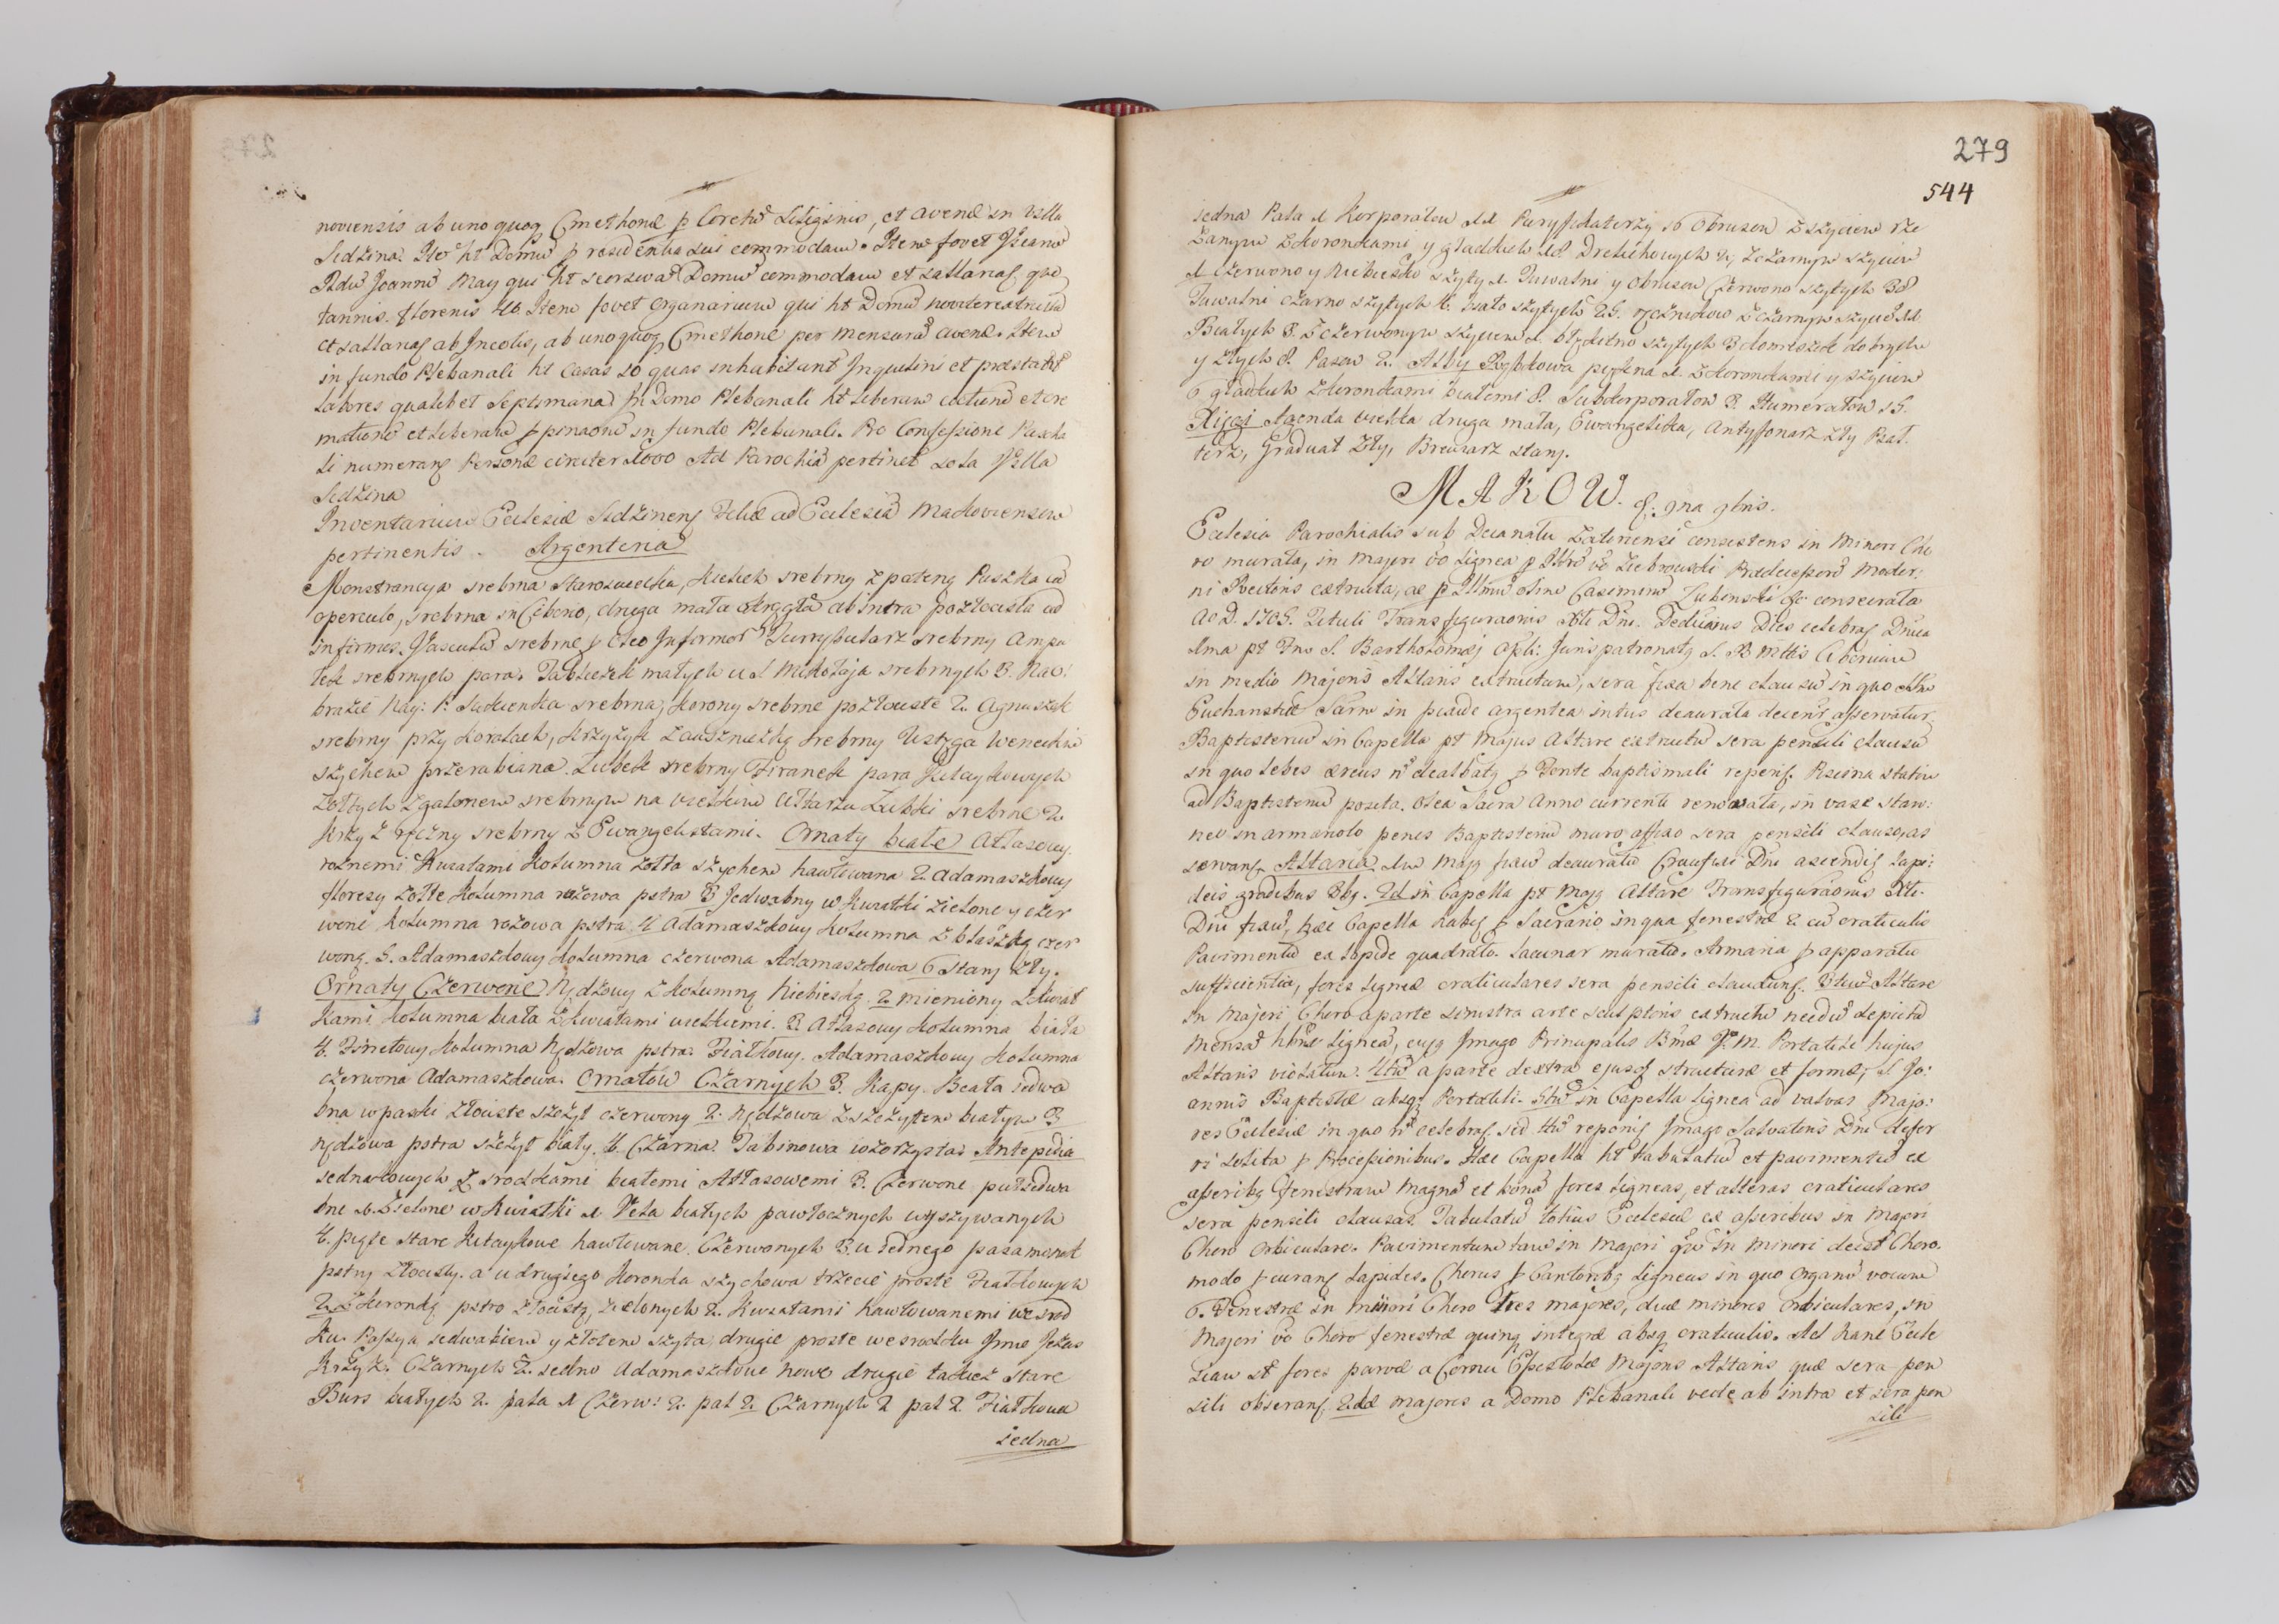 noviensis ab uno quoq Cmethone p Coretū Siliginis, et avenæ in Villa
Sidzina. Itē ht Domū p residentia sui commodam. Item fovet Vicariū
Rdū Joannē May qui ht seorsivā Domū commodam et Sallariaſ quo
tannis florenis Item fovet Organarium qui ht Domū noviter extructā
et Sallariaſ ab Incolis, ab unoquoq Cmethone per mensurā avenæ. Item
in fundo Plebanali ht Casas 10 quas inhabitant Inquilini et præstant
Labores qualibet Septimana. In Domo Plebanali ht liberam
et liberam p in fundo Plebanali. Pro Confessione Pascha
li numeranſ Personæ circiter 1000 Ad Parochiā pertinet sola Villa
Sidzina
Inventarium Ecclesiæ Sidzinenſ Filiæ ad Ecclesiā Makoviensem
pertinentis. Argenteria
Monstrancya srebrna Staroswiecka, kielich srebrny z pateną Puszka cū
operculo, srebrna in Ciborio, druga mała okrągła ab intra pozłocista ad
infirmos. Vascula srebrne p Oleo Infirmor Turrybularz srebrny Ampu
łek srebrnych para. Tabliczek małych u S Mikołaja srebrnych 3. Na o
brazie Nay: P. Sukienka srebrna, korony srebrne pozłociste 2. Agnuszek
srebrny przy koralach, krzyżyk z Lausznuszką srebrny Wstęga Weneckim
szychem przerabiana. Kubek srebrny Firanek para Kitaykowych
Zołtych z galonem srebrnym na wielkim Ołtarzu Ząbki srebrne 2.
Krzyż ręczny srebrny z Ewangelistami. Ornaty białe Atłasowy
roznemi Kwiatami Kolumna zołta szychem hawtowana 2 adamaszkowy
floresy zołte kolumna rożowa pstra 3 Jedwabny w kwiatki zielone y czer
wone kolumna rożowa pstra 4 Adamaszkowy kolumna z blaszką czer
woną. 5. Adamaszkowy kolumna czerwona Adamaszkowa 6 Stary zły.
Ornaty Czerwone Rydzowy z kolumną Niebieską 2 mieniony z kwiat
kami kolumna biała z kwiatami wielkiemi. 3. Atłasowy kolumna biała
4. kolumna Rydzowa pstra. Fiałkowy. Adamaszkowy kolumna
czerwona Adamaszkowa. Ornatow Czarnych 3. Kapy. Biała jedwa
bna w paski złociste szczyt czerwony 2. Rydzowa z szczytem białym 3
rydzowa pstra szczyt biały. 4. Czarna. Tabinowa wzorzysta. Antepedia
jednakowych z srodkami białemi Atłasowemi 3. Czerwone pułjedwa
bne Zielone w kwiatki 1 Vela białych pawłocznych wyszywanych
4. piąte stare Kitaykowe hawtowane. Czerwonych 3. u jednego pasamonek
pstry złocisty. a u drugiego koronka szychowa trzecie proste Fiałkowych
2. z koronką pstro złocistą, zielonych 2. kwiatami hawtowanemi we srod
ku. Passya jedwabiem y złotem szyta, drugie proste we srodku Imie Jezus
Krzyż. Czarnych 2. jedno Adamaszkowe nowe drugie takież stare
Burs białych 2. pala 1 Czerw: 2. pal 2. Czarnych 2 pal 2. Fiałkowa
jedna
279
544
jedna Pala 1 Korporałow Puryfikaterzy Obrusow z szyciem rże
zanym z koronkami y gładkich Drelichowych z czarnym szyciem
1 czerwono y niebiesko szyty 1. Tuwalni y obrusow Czerwono szytych
Tuwalni czarno szytych biało szytych ręcznikow z czarnym szyciē
Białych 3. z czerwonym szyciem 1. błękitno szytych domieszek dobrych
y złych 8. Pasow 2. Alby Rąbkowa piękna 1. z koronkami y szyciem
6 gładkich z koronkami białemi 8. Subkorporałow 3. Humerałow 15.
Xięgi Agenda wielka druga mała, Ewangeliczka, Antyfonarz zły Psał.
terz, Graduał zły, Brewiarz stary.
MAKOW.
Ecclesia Parochialis sub Decanatu Zatoriensi consistens in Minori Cho
ro murata, in majori vo Lignea p Zbrowski Prædecessorē Moder:
ni Rectoris extructa, ac p Illmū olim Casimirū Łubinski consecrata
Ao D. 1705. Tituli Transfiguraonis Xti Dni. Dedicaonis Dies celebraſ Dnica
1ma pt Fm S. Bartholomæj Apli: Juris patronatq S. R. Mttis Ciborium
in medio Majoris Altaris extructum, sera fixa bene clausū in quo Ssm
Euchanstiæ Sacrm in pixide argentea intus deaurata decentr asservatur.
Baptisteriū in Capella pt Majus Altare extructū sera pensili clausū
in quo lebes æreus nō dealbatq p Fonte baptismali reperiſ. Piscina statim
ad Baptisteriū posita. Olea Sacra Anno currenti renovata, in vase stan:
neo in armariolo penes Baptisteriū muro affixo sera pensili clauso as
servanſ. Altaria 1m Majq fixū deauratū Crucifixi Dni ascendiſ Lapi:
deis gradibus 3bq. 2d in Capella pt Majq Altare Transfiguraonis Xti.
Dni fixū, hæc Capella habeſ p Sacrario, in qua fenestræ 2 cū craticulis
Pavimentū ex lapide quadrato. Lacunar muratū. Armaria p apparatu
sufficientia, fores ligneæ craticulares sera pensili clauduntſ. 3tiū Altare
in Majori Choro a parte sinistra arte sculptoris extructū necdū depictū
Mensā hns Ligneā, cujq Imago Principalis Bmæ V. M. Portatile hujus
Altaris violatum. 4tū a parte dextra ejusq structuræ et formæ, S. Jo:
annis Baptistæ absq Portatili. 5tū in Capella lignea ad valvas Majo:
res Ecclesiæ in quo nō celebraſ. sed ttū reponiſ Imago Salvatoris Dni defer
ri solita p Processionibus. Hæc Capella ht tabulatū et pavimentū ex
asseribq fenestram magnā et bonā fores ligneas, et alteras craticulares
sera pensili clausas. Tabulatū totius Ecclesiæ ex asseribus in Majori
Choro orbiculare. Pavimentum tam in Majori qm in Minori deest Choro.
modo pcuranſ Lapides. Chorus p Cantoribq ligneus in quo Organū vocum
6. Fenestræ in Minori Choro tres majores, duæ minores orbiculares, in
Majori vo Choro fenestræ quinq integræ absq craticulis. Ad hanc Eccle
siam st fores parvæ a Cornu Epistolæ Majoris Altaris quæ sera pen
sili obseranſ. 2dæ majores a Domo Plebanali vecte ab intra et sera pen
sili